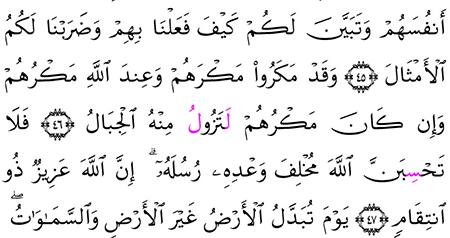 أَنفُسَهُمْ وَتَبَيَّنَ لَكُمْ كَيْفَ فَعَلْنَا بِهِمْ وَضَرَبْنَا لَكُمُ
ٱلْأَمْثَالَ ﴿٤٥﴾ وَقَدْ مَكَرُوا۟ مَكْرَهُمْ وَعِندَ ٱللَّهِ مَكْرُهُمْ
وَإِن كَانَ مَكْرُهُمْ لَتَزُولُ مِنْهُ ٱلْجِبَالُ ﴿٤٦﴾ فَلَا
تَحْسِبَنَّ ٱللَّهَ مُخْلِفَ وَعْدِهِۦ رُسُلَهُۥٓ ۗ إِنَّ ٱللَّهَ عَزِيزٌ ذُو
ٱنتِقَامٍ ﴿٤٧﴾ يَوْمَ تُبَدَّلُ ٱلْأَرْضُ غَيْرَ ٱلْأَرْضِ وَٱلسَّمَـٰوَٰتُ ۖ